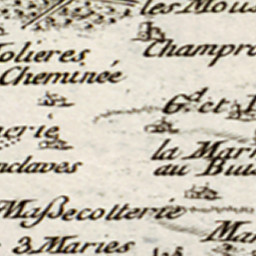 les Mous
Tolieres
Champro
Cheminée
Gd. et
erie
la Mar
nclaves
au Buis
Maßecotterie
3 Maries
Mar